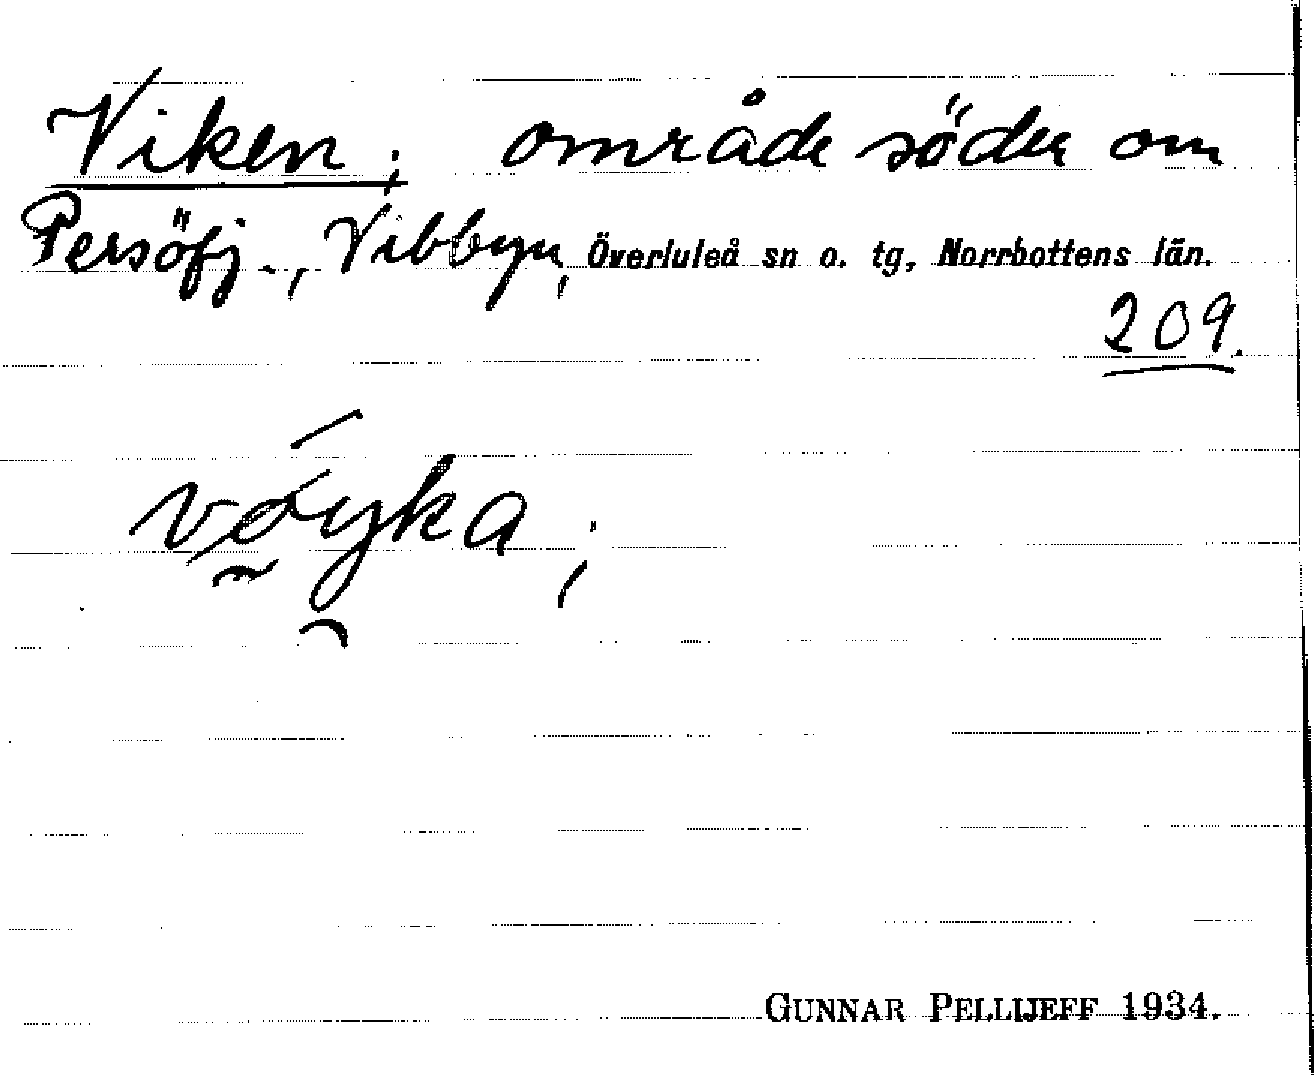 Viken; område söder om
Persöfj., Vibbyn, Överluleå sn o. tg, Norrbottens län.
209.
vøyka;
GUNNAR PELLIJEFF 1934.